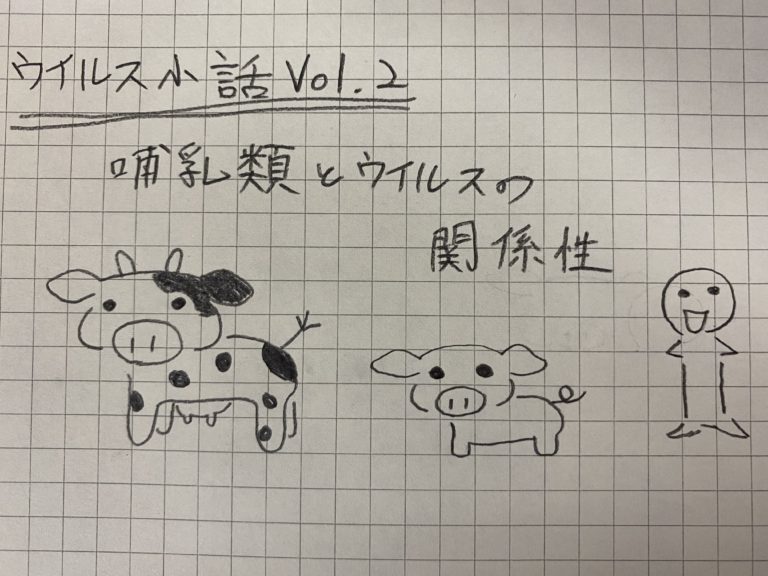 ウイルス小話 Vol.2
哺乳類とウイルスの
関係性